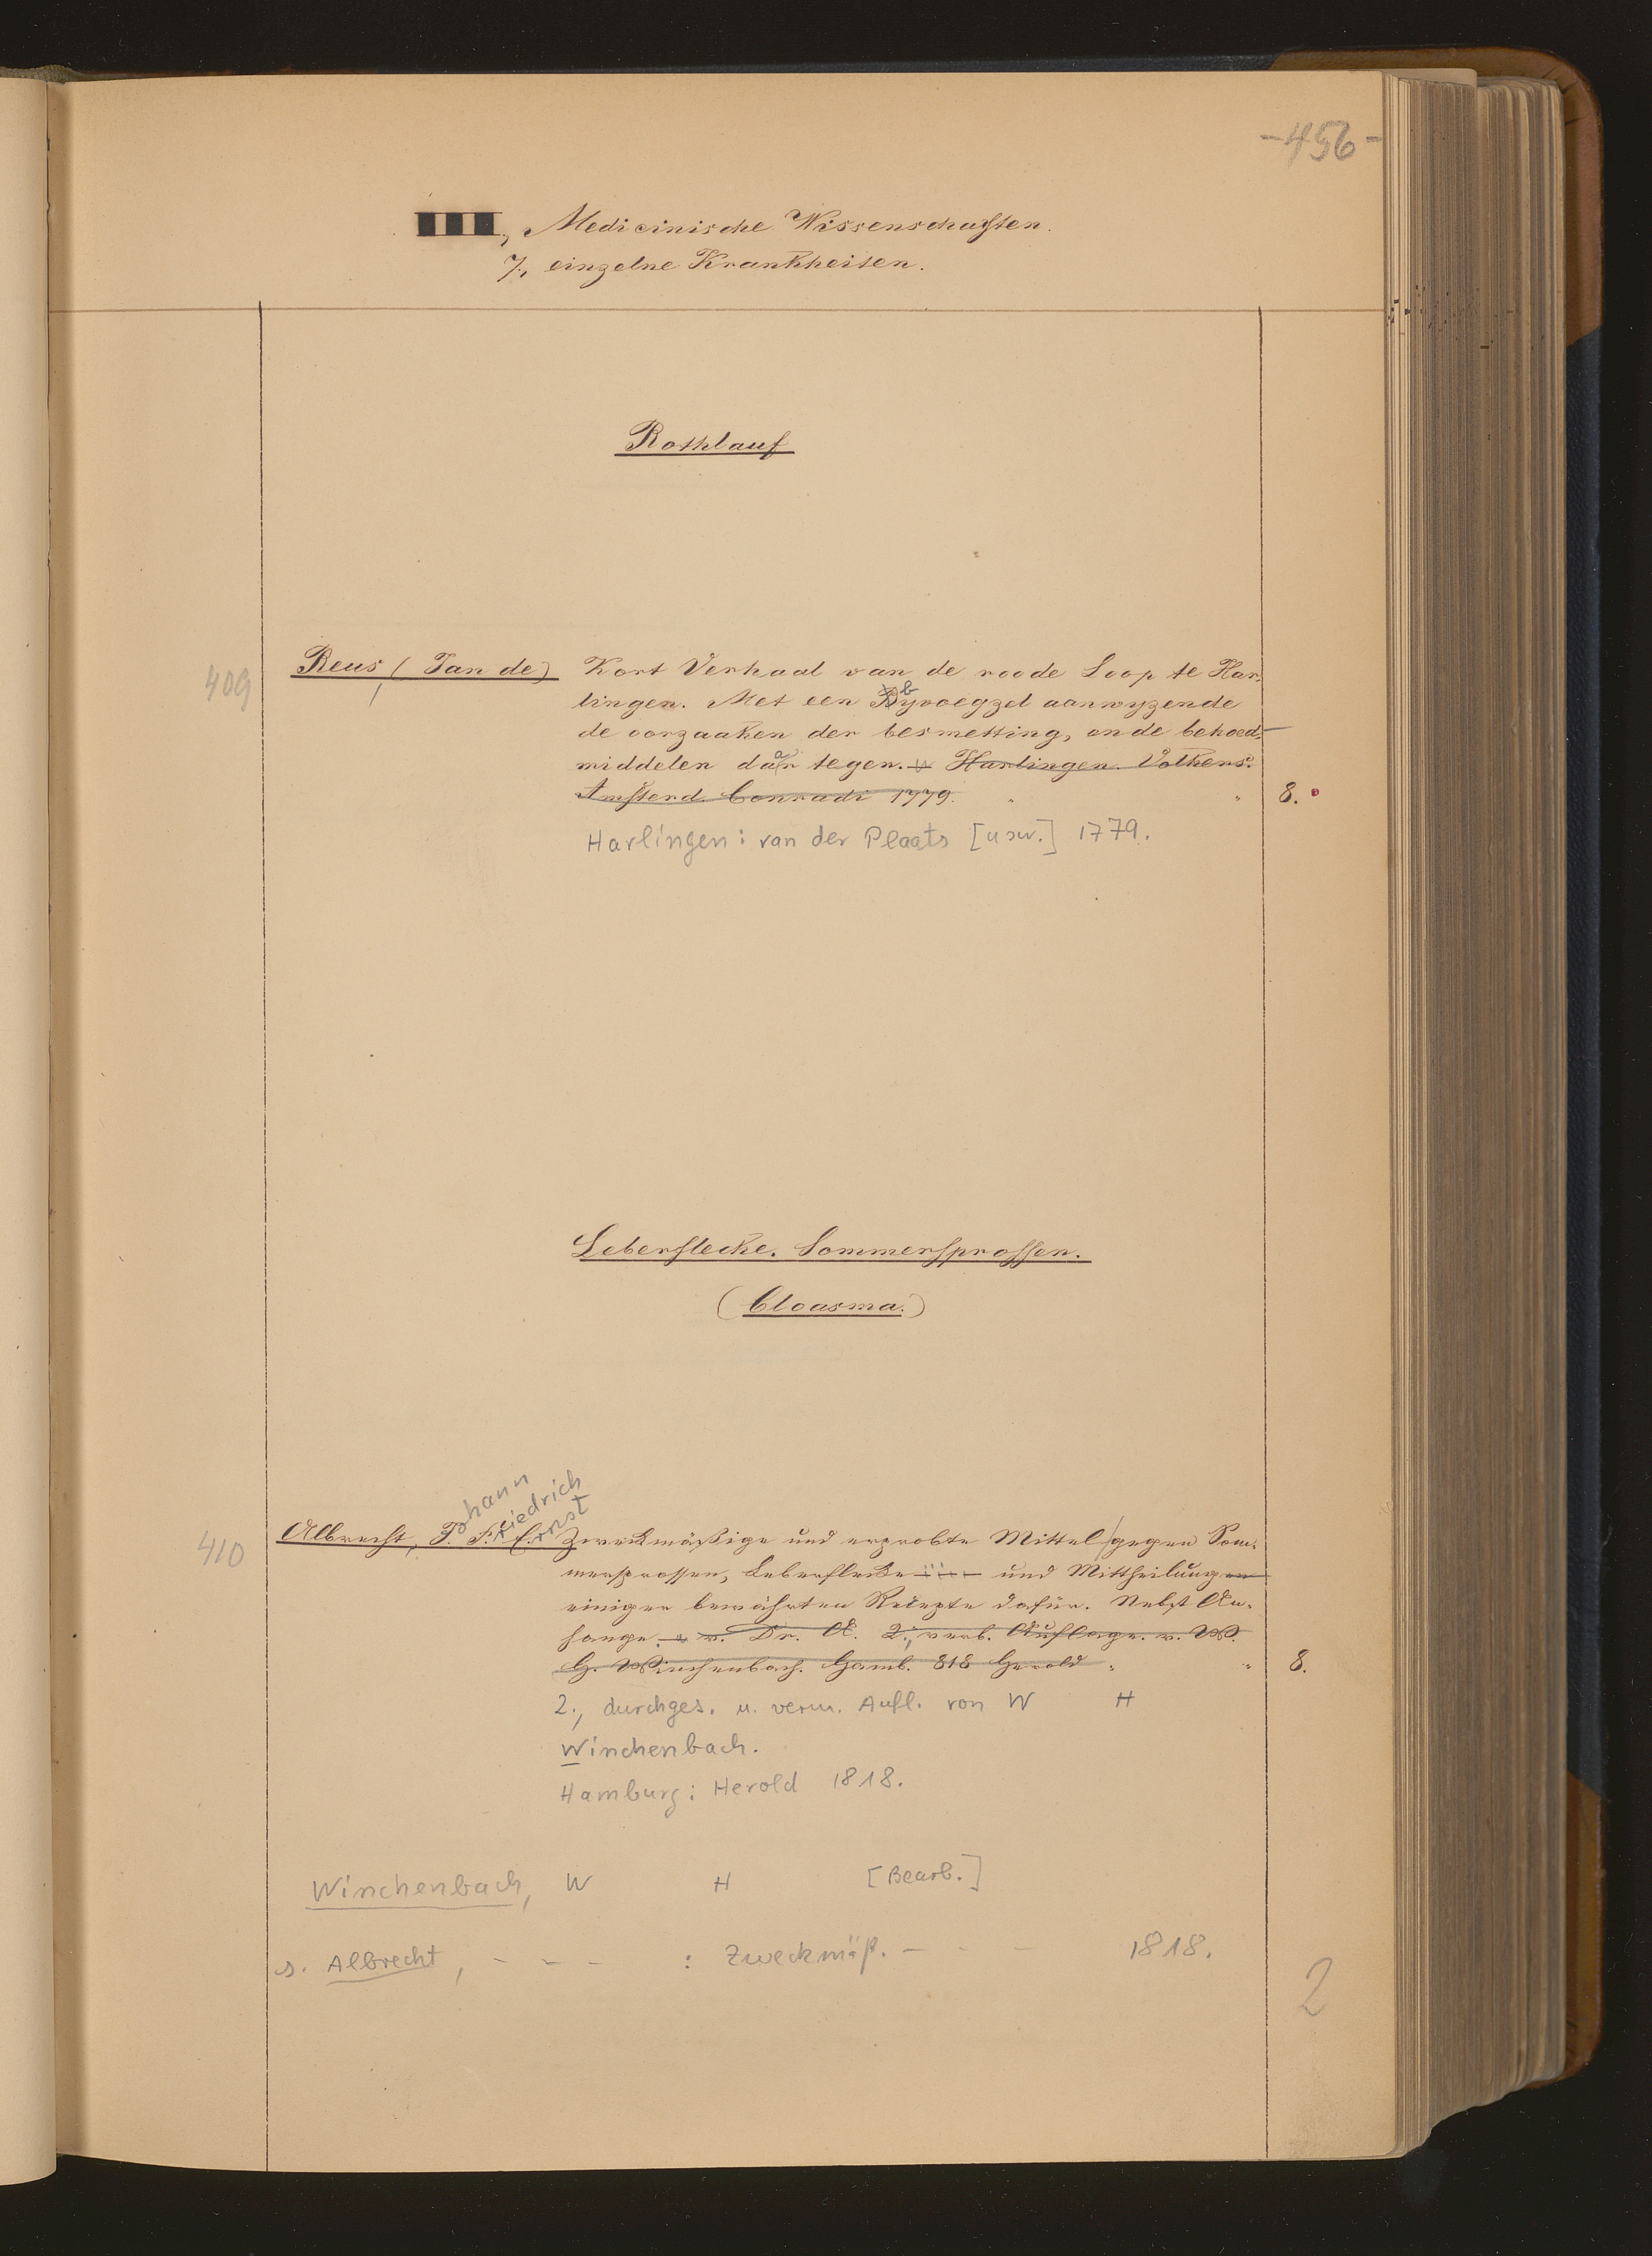 -456-
III., Medicinische Wissenschaften.
7., einzelne Krankheiten.
Rothlauf
409
Reus, (Jan de) Kort Verhaal van de roode Loop te Har-
lingen. Met een Byvoegzel aanwyzende b
de oorzaaken der besmetting, en de behoed-
middelen daar tegen. Harlingen. Volkens.
Amsterd. Conradi 1779. " " 8.
Harlingen: van der Plaats [usw.] 1779.
Leberflecke. Sommersprossen.
(Cloasma.)
410
Albrecht, Johann Friedrich Ernst Zweckmäßige und erprobte Mittel gegen Som-
mersprossen, Leberflecke und Mittheilungen
einiger bewährten Recepte dafür. Nebst An-
hange. v. Dr. A. 2., verb. Auflage. v. W.
H. Winchenbach. Hamb. 818 Herold " " 8.
2., durchges. u. verm. Aufl. von W H
Winchenbach.
Hamburg: Herold 1818.
Winchenbach, W H [Bearb.]
s. Albrecht, - - - : Zweckmäß. - - - 1818.
2